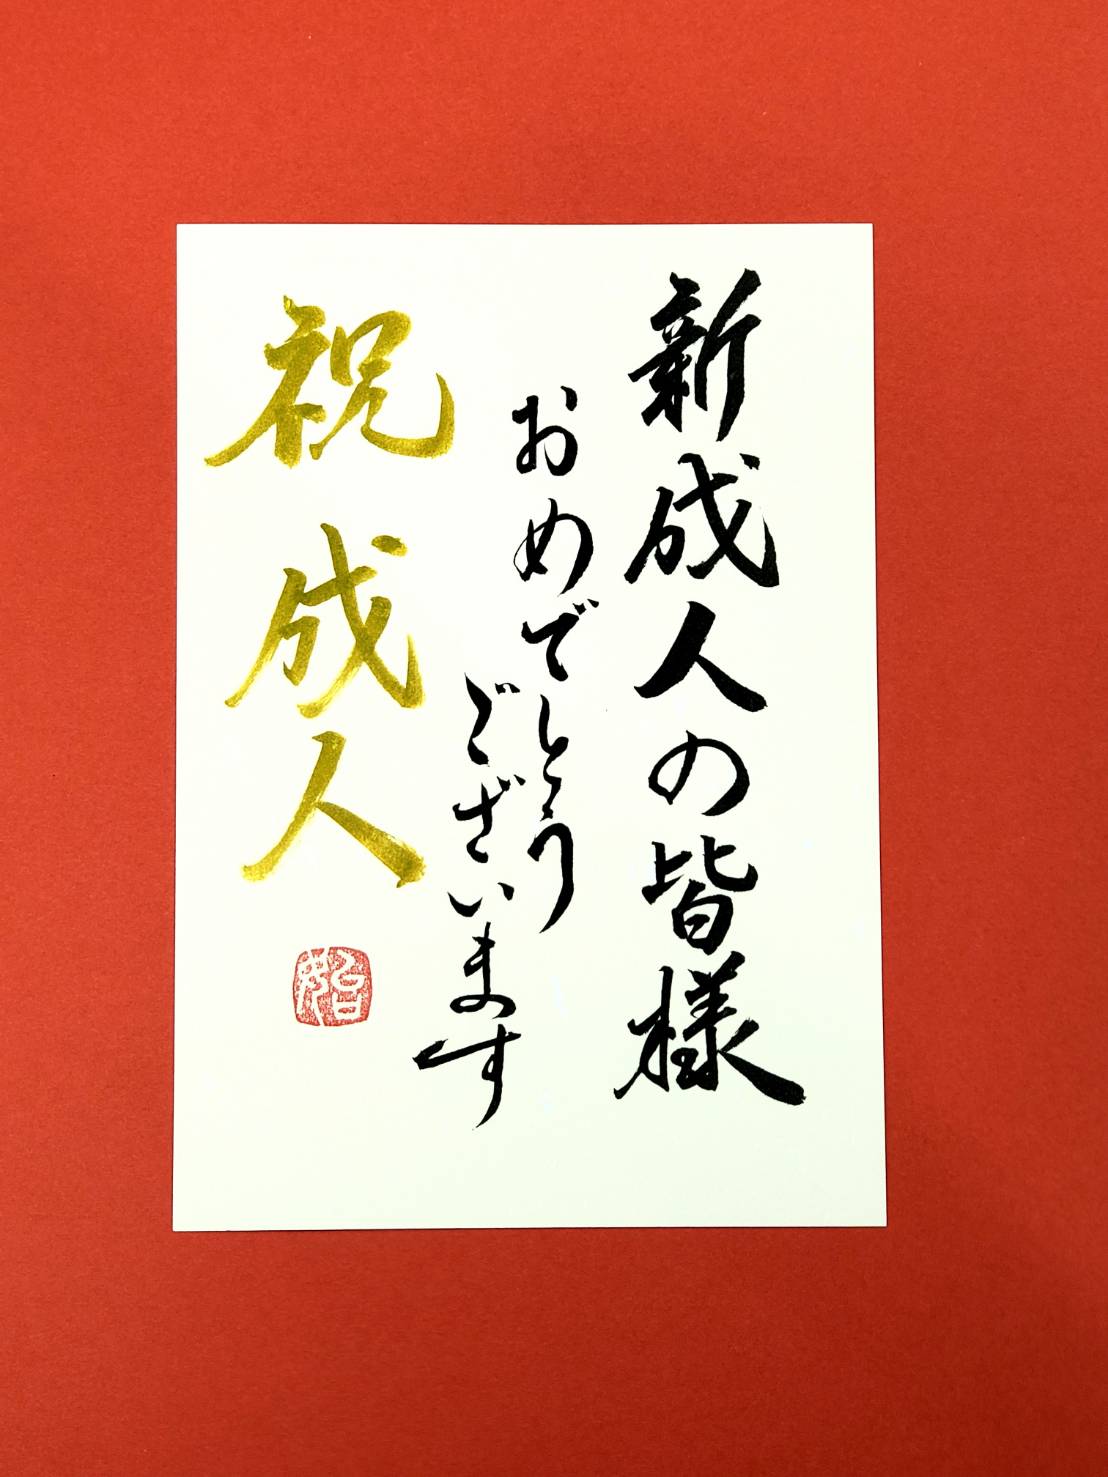 新成人の皆様
おめでとう
ございます
祝成人